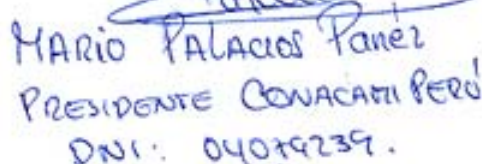 MARIO PALACIOS Panéz
PRESIDENTE CONACAMI PERÚ
DNI: 04079239.